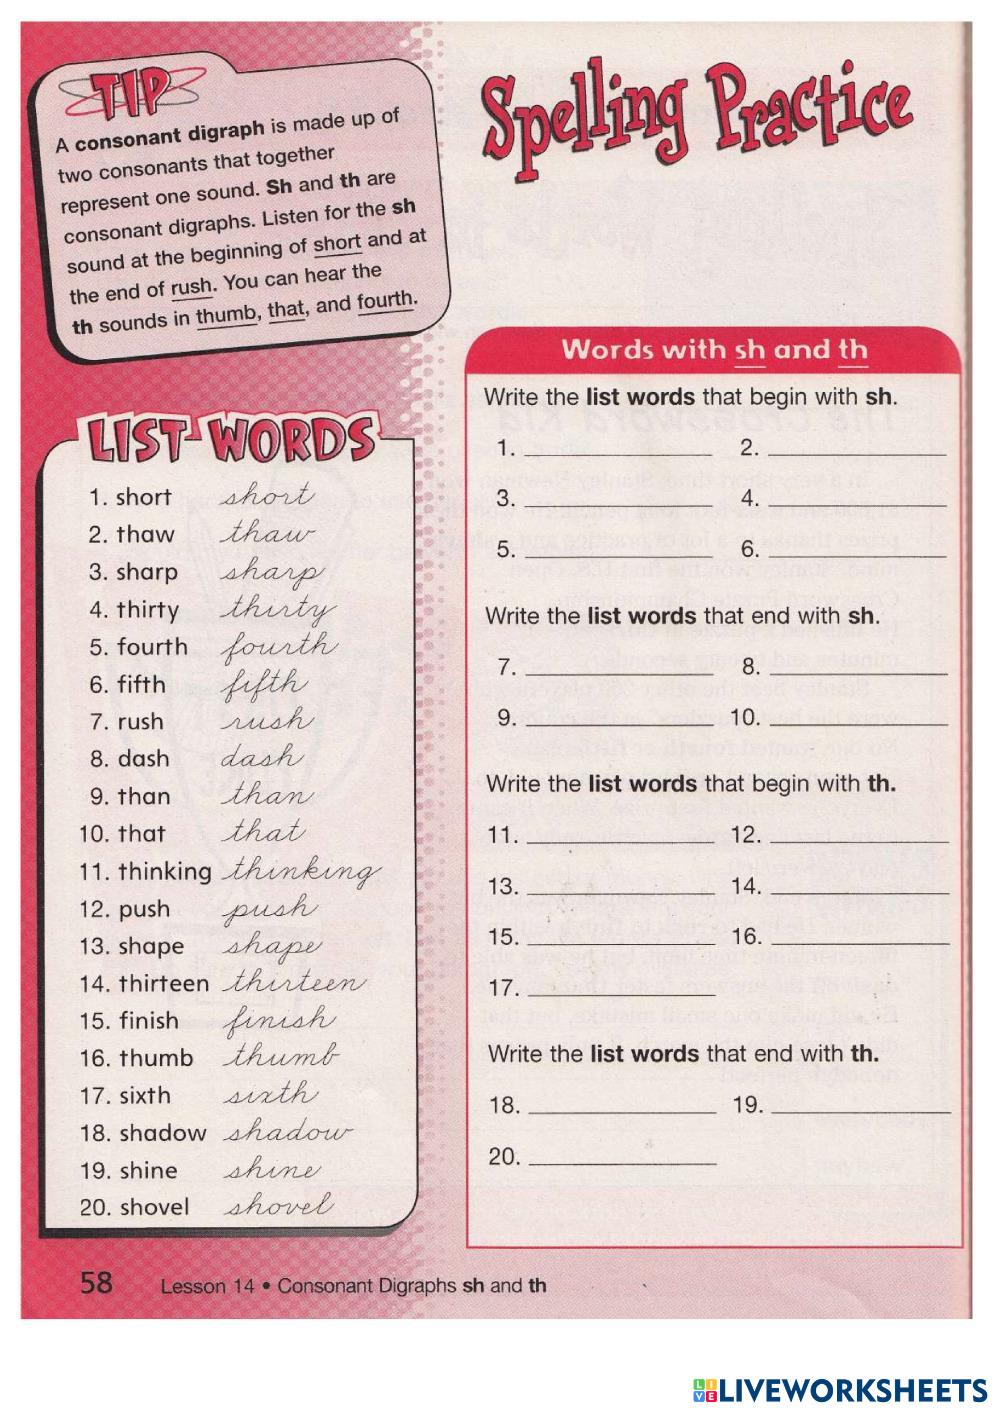 TIP
A consonant digraph is made up of
two consonants that together
represent one sound. Sh and th are
consonant digraphs. Listen for the sh
sound at the beginning of short and at
the end of rush. You can hear the
th sounds in thumb, that, and fourth.
LIST WORDS
1. short short
2. thaw thaw
3. sharp sharp
4. thirty thirty
5. fourth fourth
6. fifth fifth
7. rush rush
8. dash dash
9. than than
10. that that
11. thinking thinking
12. push push
13. shape shape
14. thirteen thirteen
15. finish finish
16. thumb thumb
17. sixth sixth
18. shadow shadow
19. shine shine
20. shovel shovel
Spelling Practice
Words with sh and th
Write the list words that begin with sh.
1. 2.
3. 4.
5. 6.
Write the list words that end with sh.
7. 8.
9. 10.
Write the list words that begin with th.
11. 12.
13. 14.
15. 16.
17.
Write the list words that end with th.
18. 19.
20.
58 Lesson 14 • Consonant Digraphs sh and th
LIVEWORKSHEETS